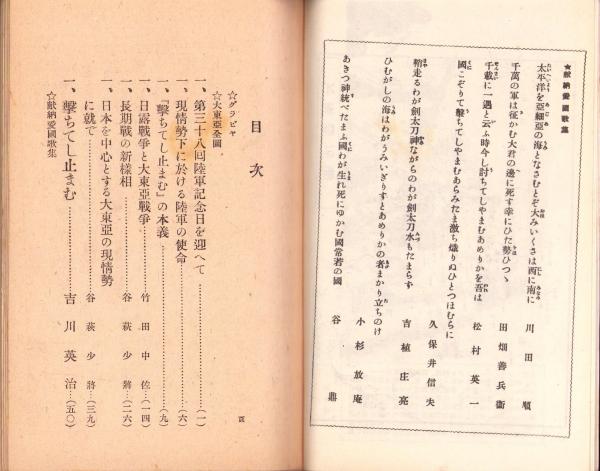 ★献納愛國歌集
太平洋を亞細亞の海となさむとぞ大みいくさは西に南に
川田順
千萬の軍は征かむ大君の邊に死す幸にひた勢ひつゝ
田畑善兵衞
千載に一遇と云ふ時今し討ちてしやまむあめりかを吾は
松村英一
國こぞりて撃ちてしやまむあらみたま激ち熾りぬひとつほむらに
久保井信夫
鞘走るわが劍太刀神ながらのわが劍太刀水もたまらず
吉植庄亮
ひむがしの海はわがうみいぎりすとあめりかの者まかり立ちのけ
小杉放庵
あきつ神統べたまふ國わが生れ死にゆかむ國常若の國
谷鼎
目次
☆グラビヤ
☆大東亞全圖
一、第三十八回陸軍記念日を迎へて…………(一)
一、現情勢下に於ける陸軍の使命…………(六)
一、『撃ちてし止まむ』の本義…………(九)
一、日露戰爭と大東亞戰爭………竹田中佐…(一四)
一、長期戰の新樣相…………谷萩少將…(二六)
一、日本を中心とする大東亞の現情勢
に就て…………谷萩少將…(三九)
一、撃ちてし止まむ…………吉川英治…(五〇)
☆献納愛國歌集
四